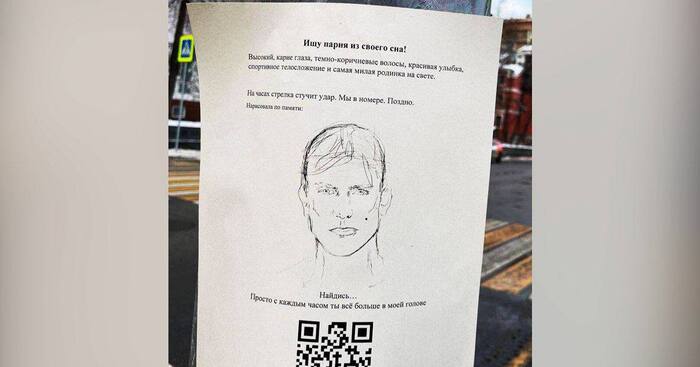 Ищу парня из своего сна!
Высокий, карие глаза, темно-коричневые волосы, красивая улыбка,
спортивное телосложение и самая милая родинка на свете.
На часах стрелка стучит удар. Мы в номере. Поздно.
Нарисовала по памяти:
Найдись…
Просто с каждым часом ты всё больше в моей голове